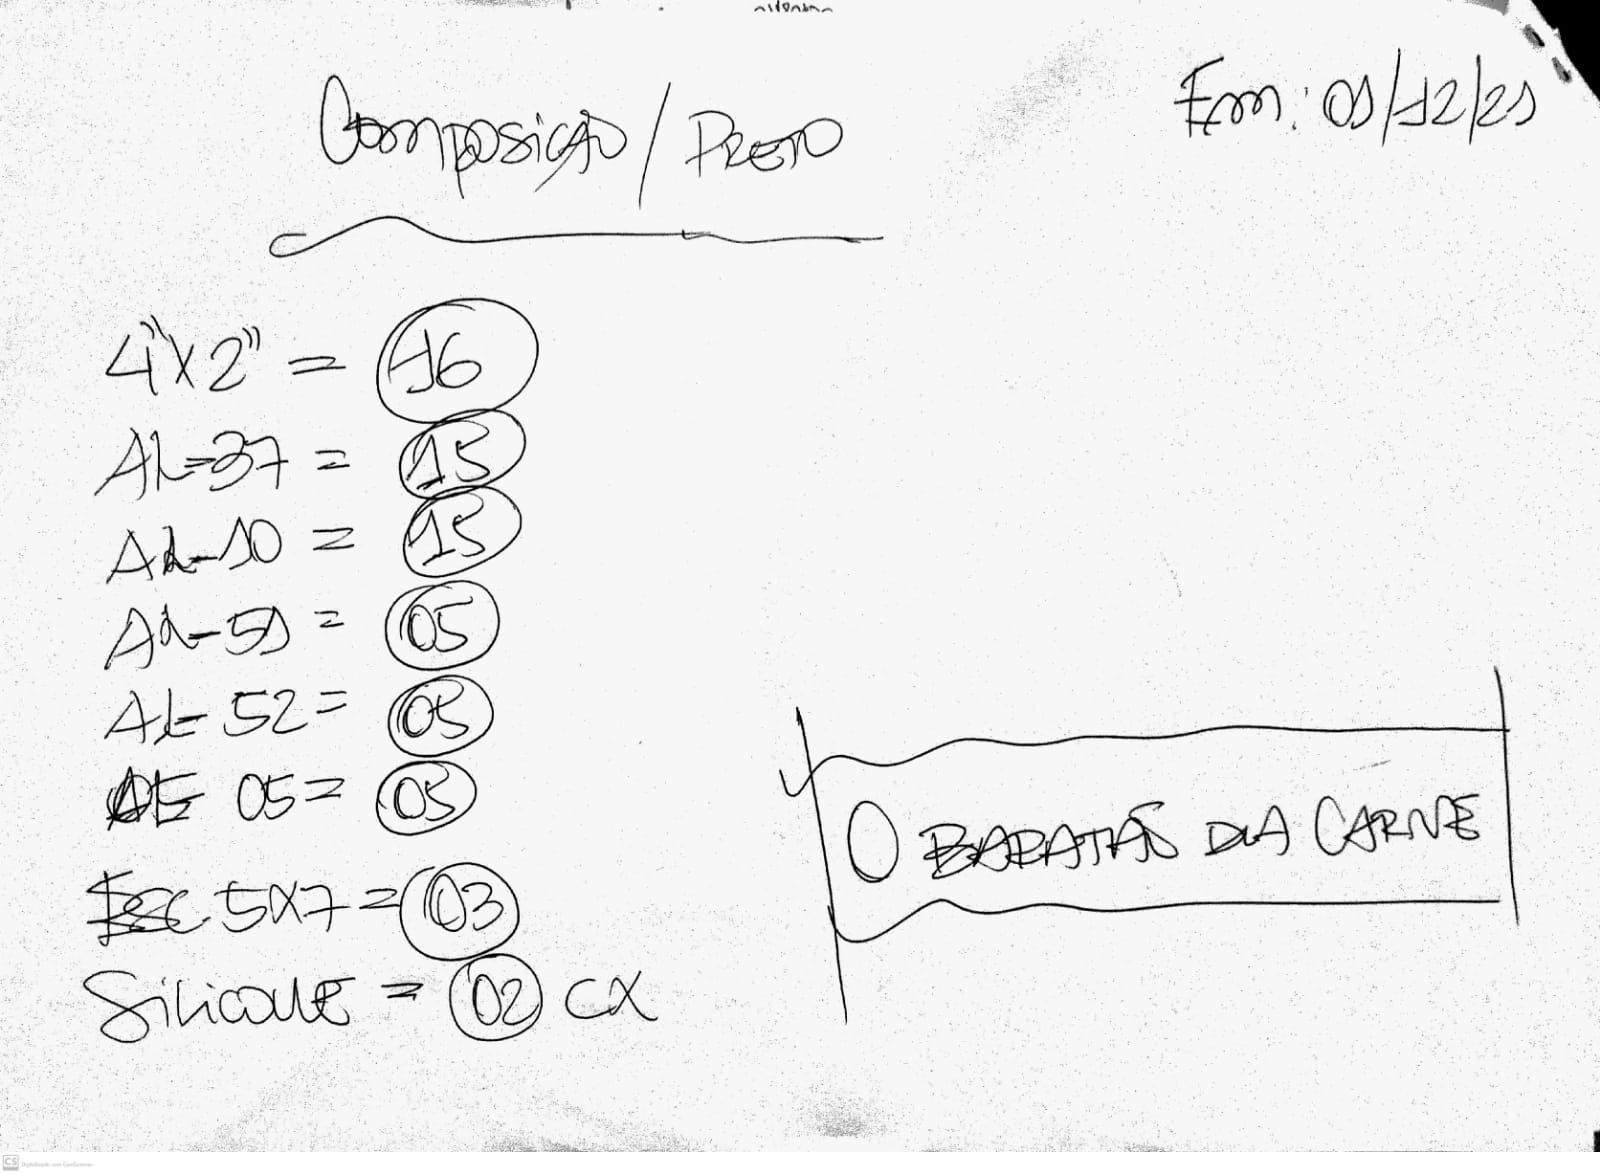 Composição / Preto
Em: 01/12/21
4" X 2" = 16
AL-37 = 15
AL-10 = 15
AL-51 = 05
AL-52 = 05
AL-05 = 05
Esc 5X7 = 03
Silicone = 02 CX
O BARATÃO DA CARNE
CS Digitalizado com CamScanner